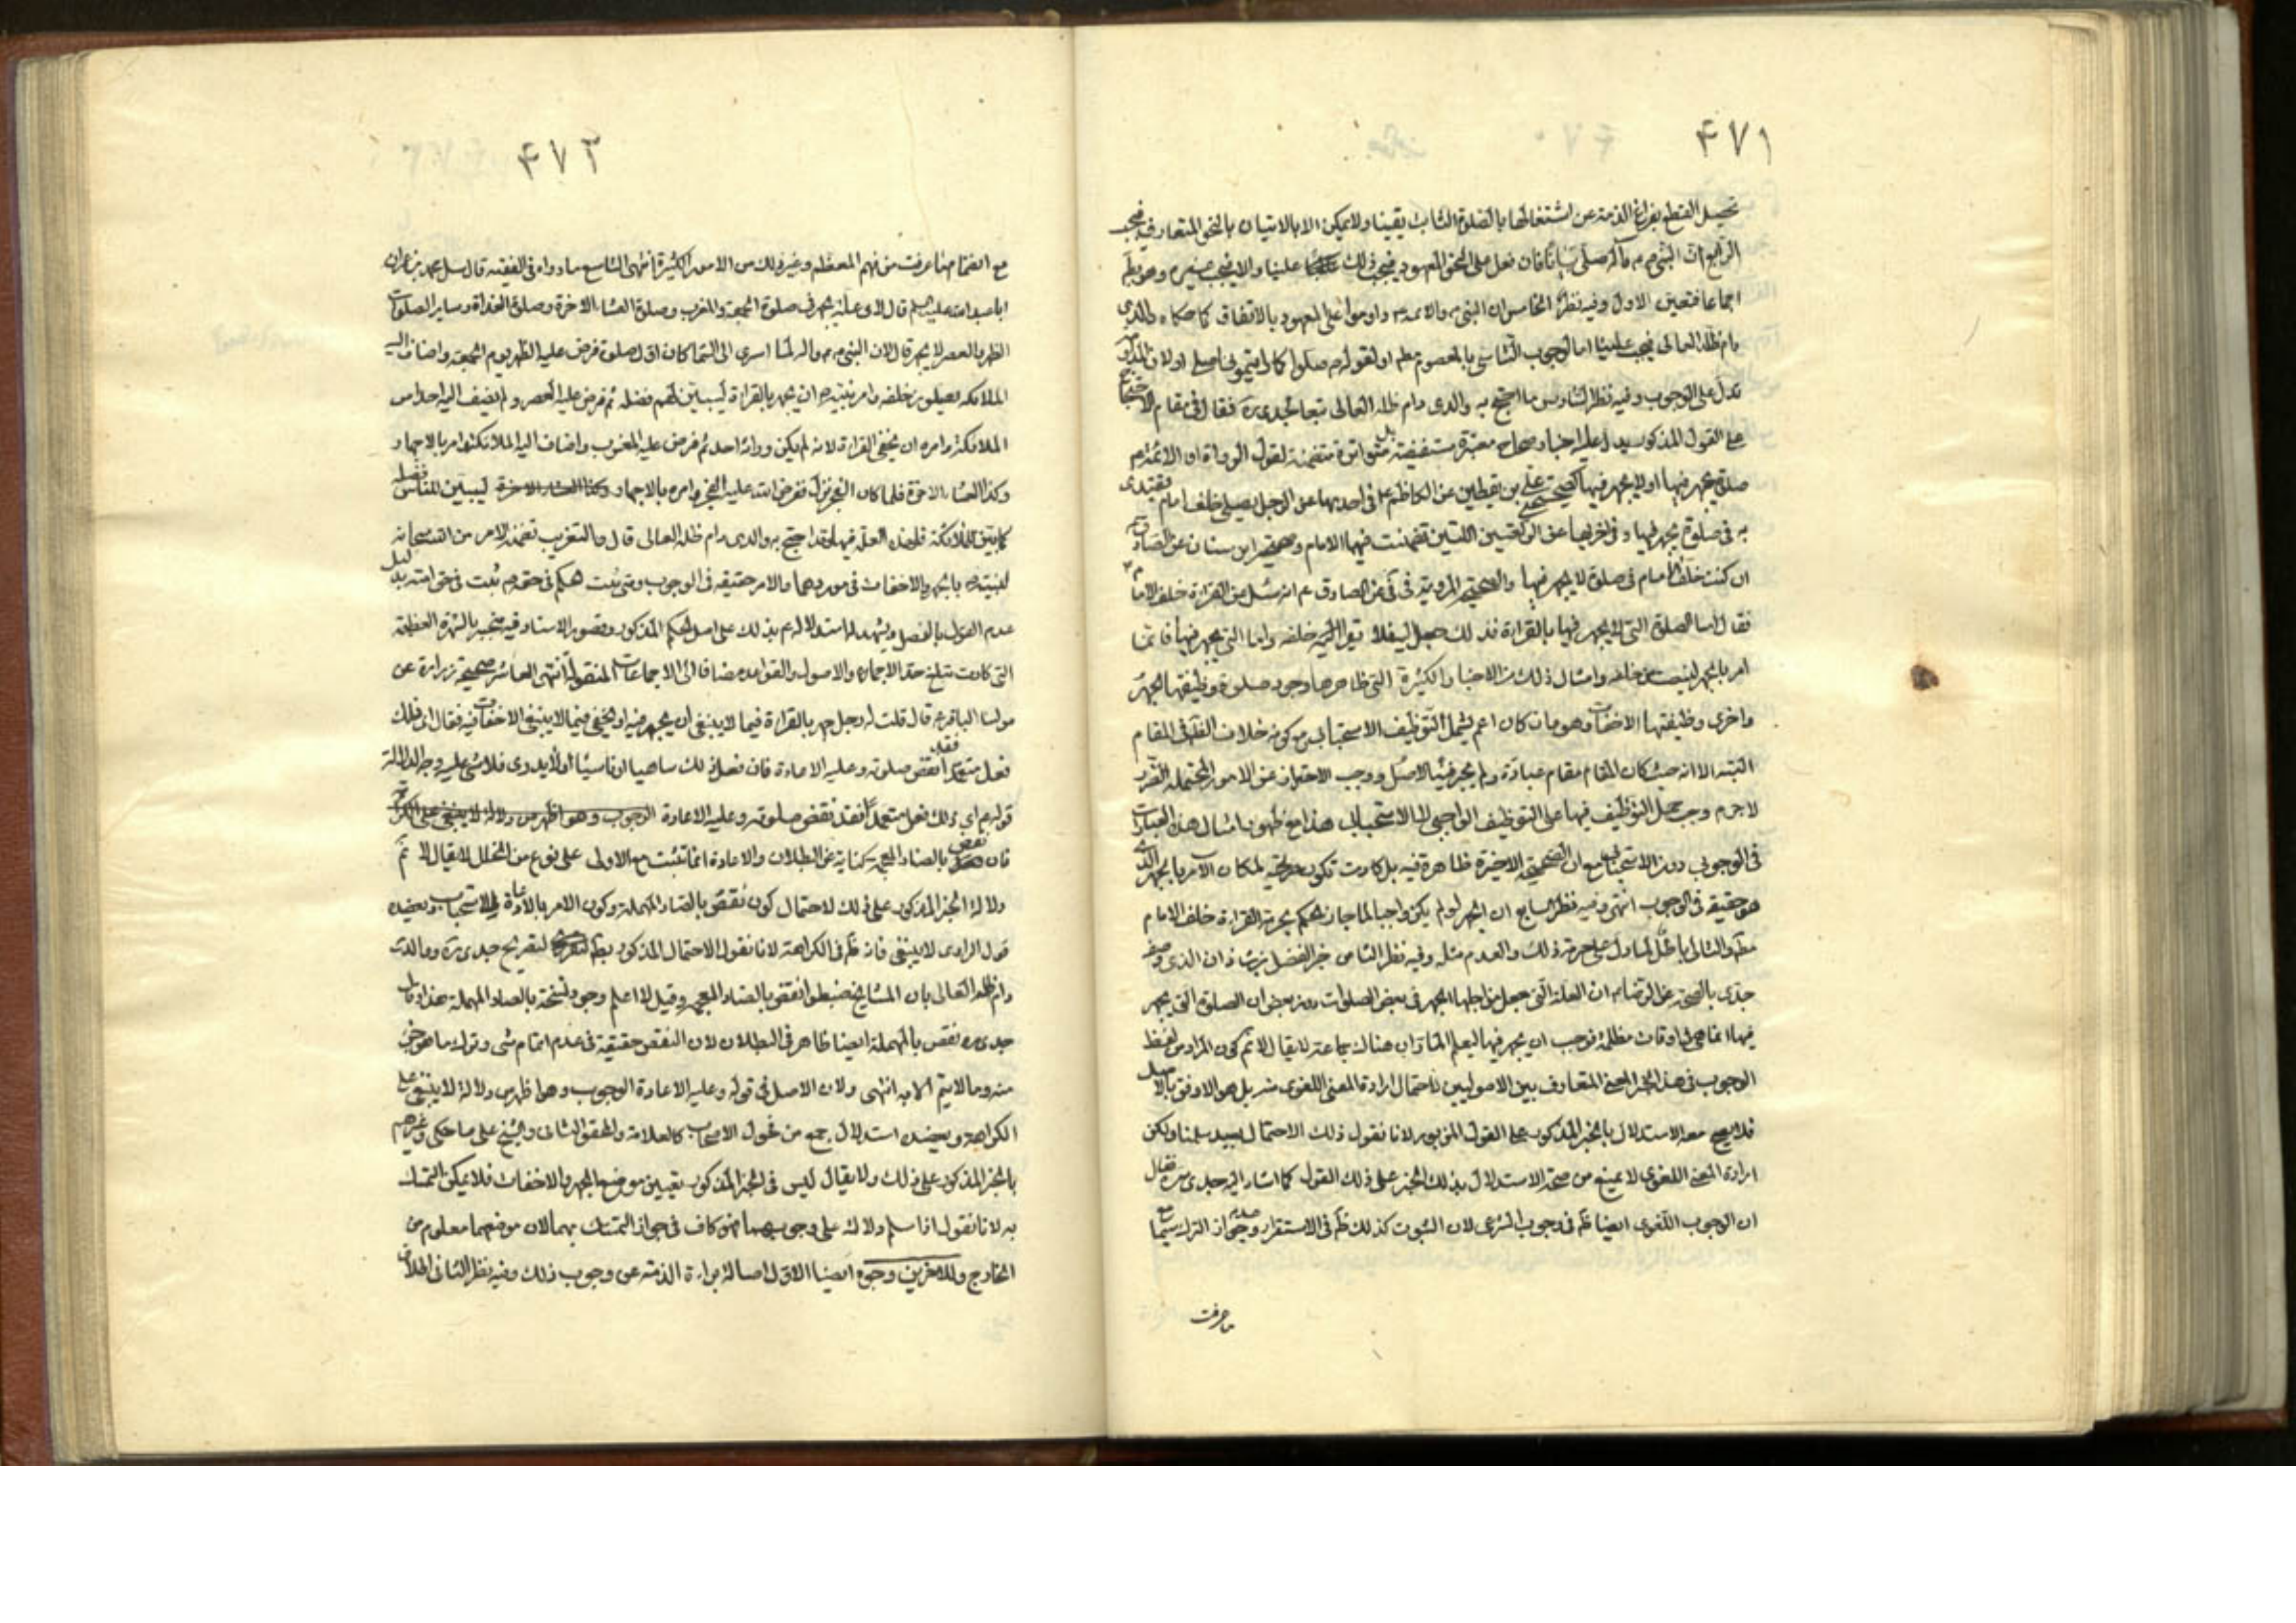 ۴۷۱
تحصيل القطع بفراغ الذمة عن اشتغالها بالصلوة الثابت يقينا ولا يمكن الا بالاتيان بالنحو المتعارف فيجب
الرابع ان النبي ص وآله صلى بيانا فان فعل على النحو المعهود فيجب ذلك علينا والا فيجب غيره وهو بط
اجماعا فتعين الاول وفيه نظر الخامس ان النبي ص والائمه ع داوموا على المعهود بالاتفاق كما حكاه والدي
دام ظله العالى فيجب علينا اما لوجوب التاسي بالمعصوم مط او لقوله ص صلوا كما رايتموني اصلي اولان
تدل على الوجوب وفيه نظر السادس ما احتج به والدى دام ظله العالى تبعا لجدى ره فقال فى مقام الاحتجاج
على القول المذكور يدل عليه اخبار صحاح معتبرة مستفيضة بل متواترة متضمنة لقول الرواة او الائمة ع
صلوة يجهر فيها او لا يجهر فيها كصحيحتي على بن يقطين عن الكاظم ع فى احديهما عن الرجل يصلى خلف امام يقتدى
به فى صلوة يجهر فيها وفى اخريهما عن الركعتين اللتين تضمنت فيهما الامام وصحيحة ابن سنان عن الصادق ع
ان كنت خلف الامام فى صلوة لا يجهر فيها والصحيحة المروية فى عن الصادق ع انه سئل عن القراءة خلف الامام
فقال اما الصلوة التى لا يجهر فيها بالقراءة فذلك جعل اليه فلا تقرأ خلفه واما التى يجهر فيها فانما
امر بالجهر لينصت من خلفه وامثال ذلك من الاخبار الكثيرة التى ظاهرها وجود صلوة وظيفتها الجهر
واخرى وظيفتها الاخفات وهو وان كان اعم يشمل التوظيف الاستحبابى من كونه خلاف الظ فى المقام
البته الا انه حيث كان المقام مقام عبادة ولم يجر فيها الاصل ووجب الاحتراز عن الامور المحتملة
لا جرم وجب حمل التوظيف فيها على التوظيف الواجبي لا الاستحبابى هذا مع ظهور امثال هذه العبارات
فى الوجوبى دون الاستحبابى مع ان الصحيحة الاخيرة ظاهرة فيه بل كادت تكون صريحة لمكان الامر بالجهر الذى
هو حقيقة فى الوجوب انتهى وفيه نظر السابع ان الجهر لو لم يكن واجبا لما جاز الحكم بحرمة القراءة خلف الامام
مط والتالى باطل لما دل على حرمة ذلك والمقدم مثله وفيه نظر الثامن خبر الفضل بن شاذان الذى وصفه
جدى بالصحة عن الرضا ع ان العلة التى جعل من اجلها الجهر فى بعض الصلوات دون بعض ان الصلوة التى يجهر
فيها انما هى فى اوقات مظلمة فوجب ان يجهر فيها ليعلم المار ان هناك جماعة لا يقال لا نم كون المراد من لفظ
الوجوب فى هذا الخبر المعنى المتعارف بين الاصوليين لاحتمال ارادة المعنى اللغوى منه بل هو الاوفق بالاصل
فلا يصح معه الاستدلال بالخبر المذكور على القول المزبور لانا نقول ذلك الاحتمال بعيد سلمنا ولكن
ارادة المعنى اللغوى لا يمنع من صحة الاستدلال بذلك الخبر على ذلك القول كما اشار اليه جدى س ره فقال
ان الوجوب اللغوى ايضا ظ فى وجوب الشرعى لان الثبوت كذلك ظ فى الاستقرار وعدم جواز الترك سيما مع
ما عرفت
۴۷۲
مع انضمام ما عرفت من فهم المعظم وغير ذلك من الامور الكثيرة انتهى التاسع ما رواه فى الفقيه قال سئل محمد بن عمران
ابا عبد الله عليه السلم قال لاى علة يجهر فى صلوة الجمعة والمغرب وصلوة العشاء الاخرة وصلوة الغداة وساير الصلوات
الظهر والعصر لا يجهر قال لان النبي ص واله لما اسرى الى السما كان اول صلوة فرض عليه الظهر يوم الجمعة واضاف اليه
الملائكه يصلون خلفه وامر نبيه ص ان يجهر بالقراءة ليبين لهم فضله ثم فرض عليه العصر ولم يضف اليه احدا من
الملائكة وامره ان يخفى القراءة لانه لم يكن وراءه احد ثم فرض عليه المغرب واضاف اليه الملائكة وامر بالاجهار
وكذا العشاء الاخرة فلما كان الفجر نزل ففرض الله عليه الفجر وامره بالاجهار ليبين للناس فضله
كما بين للملائكة فلهذه العلة يجهر فيها وقد احتج به والدى دام ظله العالى قال والتقريب تضمنه الامر من الله سبحانه
لنبيه ص بالجهر والاخفات فى موردهما والامر حقيقة فى الوجوب ومتى ثبت الحكم فى حقه ص ثبت فى حق امته بدليل
عدم القول بالفصل ويشهد له استدلاله ع بذلك على اصل الحكم المذكور وقصور الاسناد فيه منجبر بالشهرة العظيمة
التى كادت تبلغ حد الاجماع والاصول والقواعد مضافا الى الاجماعات المنقولة انتهى العاشر صحيحة زرارة عن
مولنا الباقر ع قال قلت له رجل جهر بالقراءة فيما لا ينبغى ان يجهر فيه او يخفى فيما لا ينبغى الاخفات فيه فقال اى ذلك
فعل متعمدا فقد نقض صلوته وعليه الاعادة فان فعل ذلك ساهيا او ناسيا او لا يدرى فلا شئ عليه وجه الدلالة
قوله ع اى ذلك فعل متعمدا فقد نقض صلوته وعليه الاعادة الوجوب وهو اظهر من دلالة لا ينبغى على الكراهة
فان نقض بالضاد المعجمه كناية عن البطلان والاعادة انما تثبت مع الاولى على نوع من الخلل لا يقال لا نم
دلالة الخبر المذكور على ذلك لاحتمال كون نقص بالصاد المهملة وكون الامر بالاعادة للاستحباب ويعضده
قول الراوى لا ينبغى فانه ظ فى الكراهة لانا نقول الاحتمال المذكور بط لتصريح جدى س ره ووالدى
دام ظله العالى بان المشايخ ضبطوا نقض بالضاد المعجمه وقيل لا اعلم وجود نسخة بالصاد المهملة هذا وقال
جدى س ره نقص بالمهملة ايضا ظاهر فى البطلان لان النقص حقيقة فى عدم اتمام شى وترك ما هو جزء
منه وما لا يتم الا به انتهى ولان الاصل فى قوله وعليه الاعادة الوجوب وهو اظهر من دلالة لا ينبغى على
الكراهة ويعضده استدلال جمع من فحول الاصحاب كالعلامة والمحقق الثانى والشيخ على ما حكى وغيرهم
بالخبر المذكور على ذلك ولا يقال ليس فى الخبر المذكور تعيين موضع الجهر والاخفات فلا يمكن التمسك
به لانا نقول اذا سلم دلالته على وجوبهما فهو كاف فى جواز التمسك بهما لان موضعهما معلوم من
الخارج وللاخرين وجوه ايضا الاول اصالة براءة الذمة عن وجوب ذلك وفيه نظر الثانى اطلاق